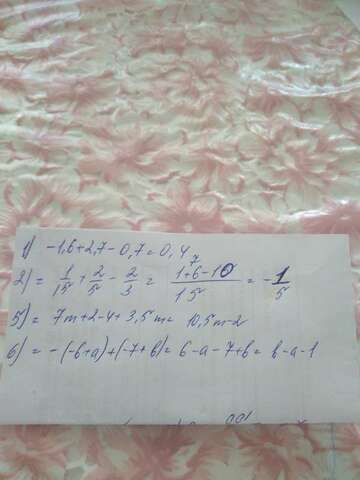 1) -1,6+2,7-0,7=0,4
2) = 1/15 + 2/5 - 2/3 = (1+6-10)/15 = -1/5
5) = 7m+2-4+3,5m= 10,5m-2
6) = -(-6+a)+(-7+b)= 6-a-7+b= b-a-1